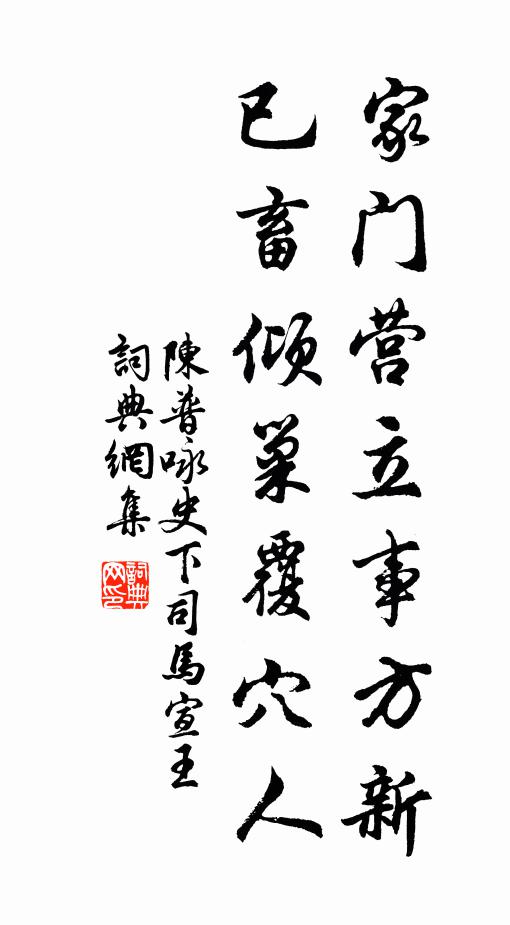 家门营立事方新
已畜倾巢覆穴人
陳普咏史下司馬宣王
詞典網集
詞典网印